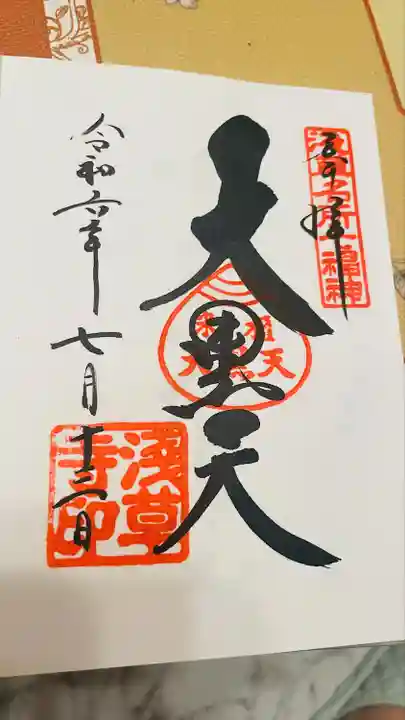 奉拝
浅草名所七福神
大黒天
令和六年七月十三日
浅草寺印